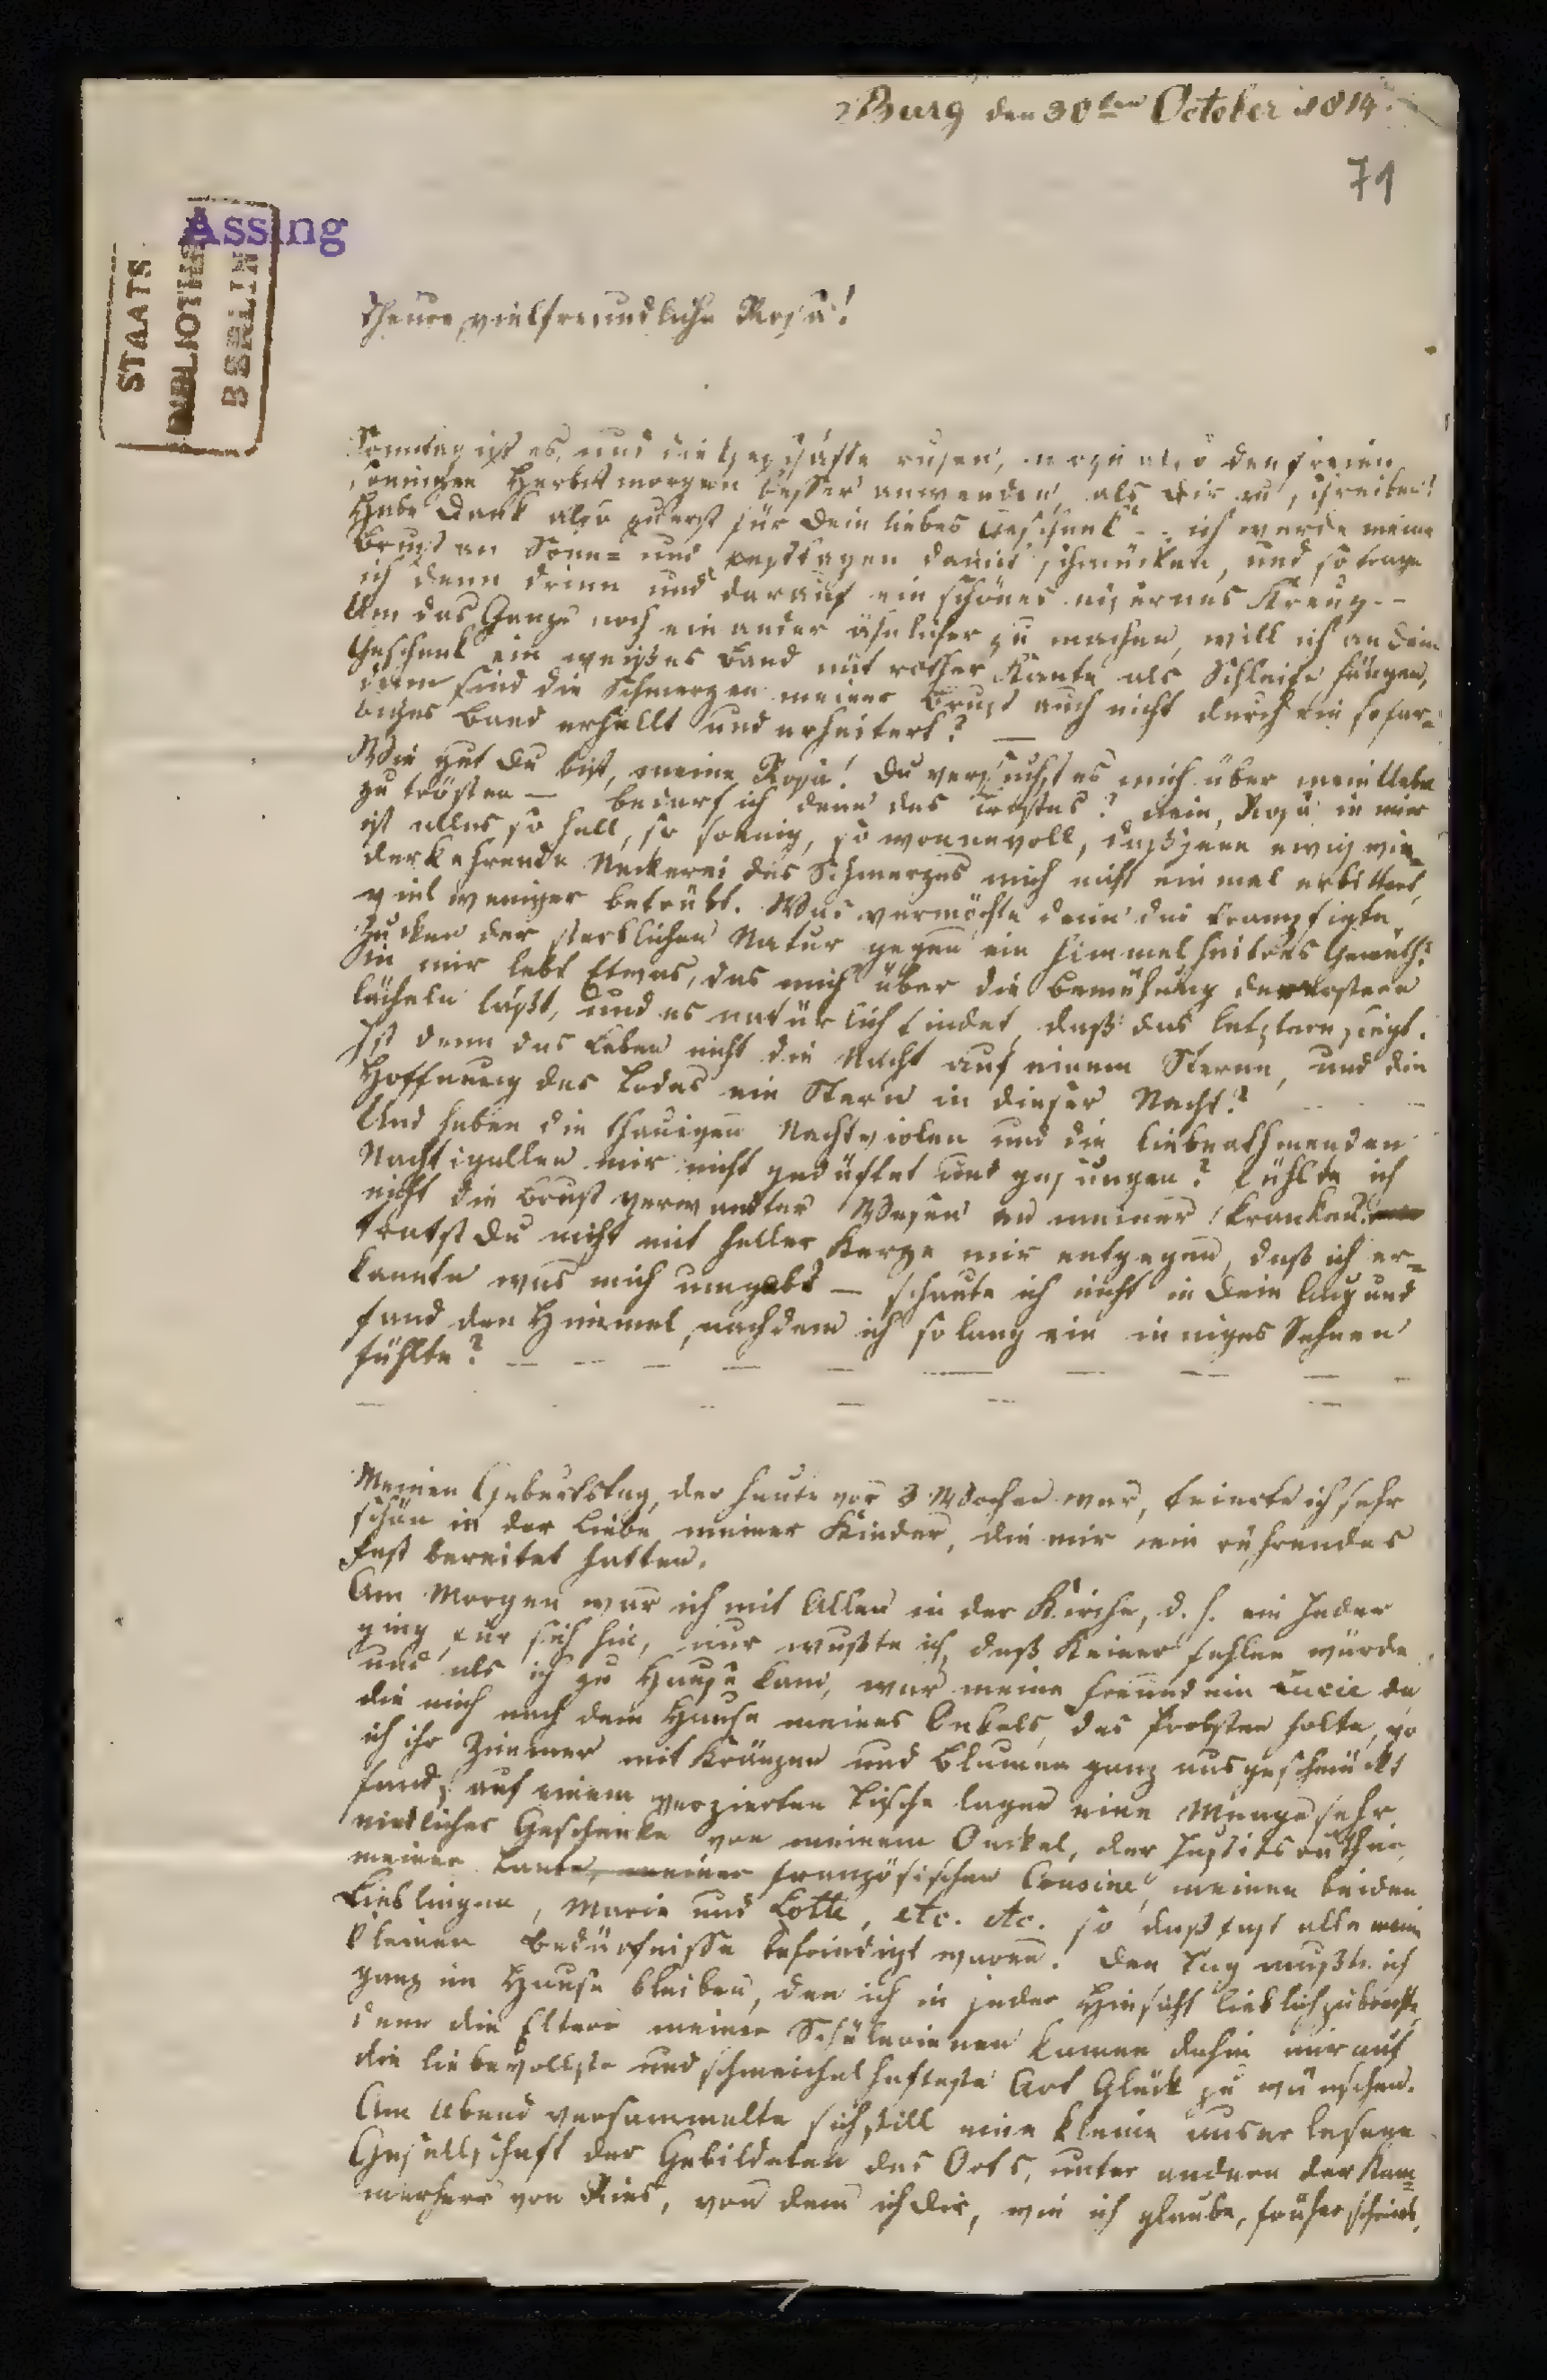 Burg den 30ten October 1814.
71
Assing
STAATS
BIBLIOTHEK
BERLIN
Theure, vielfreundliche Rosa!
Sonntag ist es, und die Geschäfte ruhen, wozu also den freien
sonnigen Herbstmorgen besser anwenden, als Dir zu schreiben!
Habe Dank also zuerst für Dein liebes Geschenk -- ich werde meine
Brust an Sonn= und Festtagen damit schmücken, und so trage
ich denn drinn und darauf ein schönes eisernes Kreuz --
Um das Ganze noch einander ähnlicher zu machen, will ich an Dein
Geschenk ein weißes Band mit rother Kante als Schleife hängen,
denn sind die Schmerzen meiner Brust auch nicht durch ein so far=
biges Band erhellt und erheitert? —
Wie gut Du bist, meine Rosa! Du versuchst es mich über mein Uebel
zu trösten — bedarf ich denn des Trostes? Nein, Rosa, in mir
ist alles so hell, so sonnig, so wonnevoll, daß jene ewig wie=
derkehrende Neckerei des Schmerzes mich nicht einmal erbittert,
viel weniger betrübt. Was vermöchte denn das krampfigte
Zucken der sterblichen Natur gegen ein himmelheitres Gemüth?
In mir lebt Etwas, das mich über die Bemühung der erstern
lächeln läßt, und es natürlich findet, daß das letztere siegt.
Ist denn das Leben nicht die Nacht auf einem Sterne, und die
Hoffnung des Todes ein Stern in dieser Nacht?
Und haben die thauigen Nachtviolen und die liebeathmenden
Nachtigallen mir nicht geduftet und gesungen? fühlte ich
nicht die Brust verwandter Wesen an meiner kranken
tratst Du nicht mit heller Kerze mir entgegen, daß ich er=
kannte was mich umgebt — schaute ich nicht in Dein Aug und
fand den Himmel, nachdem ich so lang ein inniges Sehnen
fühlte? — — — — — — — — —
— — — — —
Meinen Geburtstag, der heute vor 3 Wochen war, feierte ich sehr
schön in der Liebe meiner Kinder, die mir ein rührendes
Fest bereitet hatten.
Am Morgen war ich mit Allen in der Kirche, d. h. ein Jeder
ging für sich hin, nur wußte ich, daß Keiner fehlen würde,
und als ich zu Hause kam, war meine Freundin Lucie da
die mich nach dem Hause meines Onkels, des Probsten holte, wo
ich ihr Zimmer mit Kränzen und Blumen ganz ausgeschmückt
fand; auf einem verzierten Tische lagen eine Menge sehr
niedlicher Geschenke von meinem Onckel, der Justitsräthin,
meiner Tante, meiner französischen Cousine, meinen beiden
Lieblingen, Marie und Lotte, etc. etc. so daß fast alle meine
kleinen Bedürfnisse befriedigt waren. Den Tag mußte ich
ganz im Hause bleiben, den ich in jeder Hinsicht lieblich zubrachte,
denn die Eltern meiner Schülerinnen kamen dahin mir auf
die liebevollste und schmeichelhafteste Art Glück zu wünschen.
Am Abend versammelte sich still eine kleine auserlesene
Gesellschaft der Gebildeten des Orts, unter andern der Kam=
merherr von Ries, von dem ich Dir, wie ich glaube, früher schrieb,